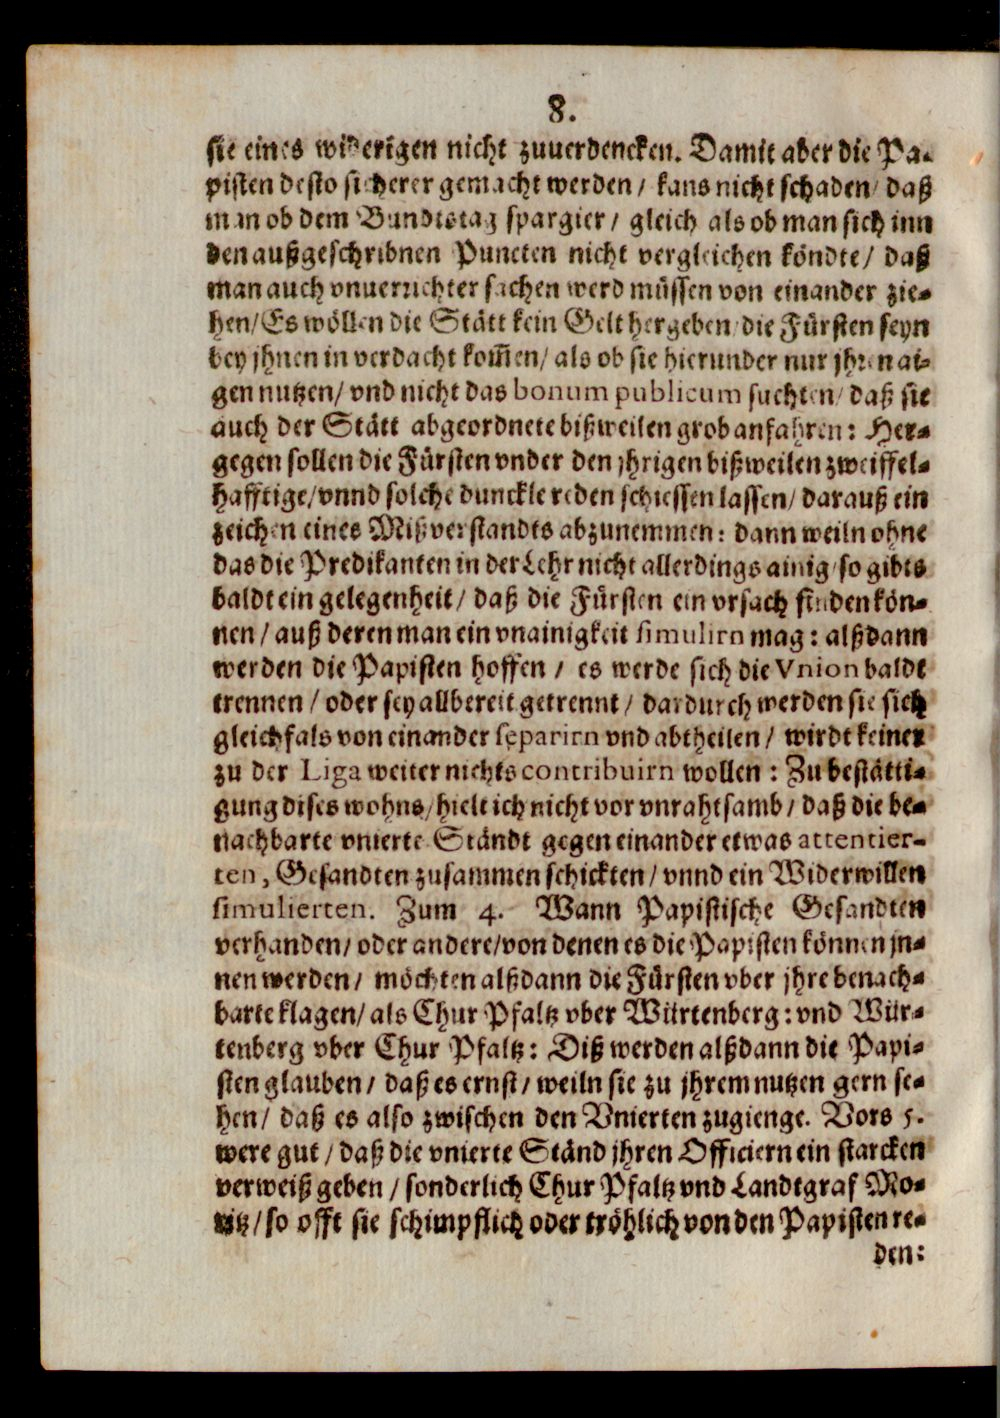 8.
sie eines widerigen nicht zuuerdencken. Damit aber die Pa-
pisten desto sicherer gemacht werden / kans nicht schaden / daß
man ob dem Bundtstag spargier / gleich als ob man sich inn
den außgeschribnen Puncten nicht vergleichen köndte / daß
man auch vnuerrichter sachen werd müssen von einander zie-
hen / Es wöllen die Stätt kein Gelt hergeben / die Fürsten seyn
bey jhnen in verdacht kom̃en / als ob sie hierunder nur jhren ai-
gen nutzen / vnd nicht das bonum publicum suchten / daß sie
auch der Stätt abgeordnete bißweilen grob anfahren: Her-
gegen sollen die Fürsten vnder den jhrigen bißweilen zweiffel-
hafftige / vnnd solche dunckle reden schiessen lassen / darauß ein
zeichen eines Mißverstandts abzunemmen: dann weiln ohne
das die Predikanten in der Lehr nicht allerdings ainig / so gibts
baldt ein gelegenheit / daß die Fürsten ein vrsach finden kön-
nen / auß deren man ein vnainigkeit simulirn mag: alßdann
werden die Papisten hoffen / es werde sich die Vnion baldt
trennen / oder sey allbereit getrennt / dardurch werden sie sich
gleichfals von einander separirn vnd abtheilen / wirdt keiner
zu der Liga weiter nichts contribuirn wollen: Zu bestätti-
gung dises wohns / hielt ich nicht vor vnrahtsamb / daß die be-
nachbarte vnierte Ständt gegen einander etwas attentier-
ten, Gesandten zusammen schickten / vnnd ein Widerwillen
simulierten. Zum 4. Wann Papistische Gesandten
verhanden / oder andere / von denen es die Papisten können jn-
nen werden / möchten alßdann die Fürsten vber jhre benach-
barte klagen / als Chur Pfaltz vber Würtenberg: vnd Wür-
tenberg vber Chur Pfaltz: Diß werden alßdann die Papi-
sten glauben / daß es ernst / weiln sie zu jhrem nutzen gern se-
hen / daß es also zwischen den Vnierten zugienge. Vors 5.
were gut / daß die vnierte Ständ jhren Officiern ein starcken
verweiß geben / sonderlich Chur Pfaltz vnd Landtgraf Mo-
ritz / so offt sie schimpflich oder tröhlich von den Papisten re-
den: